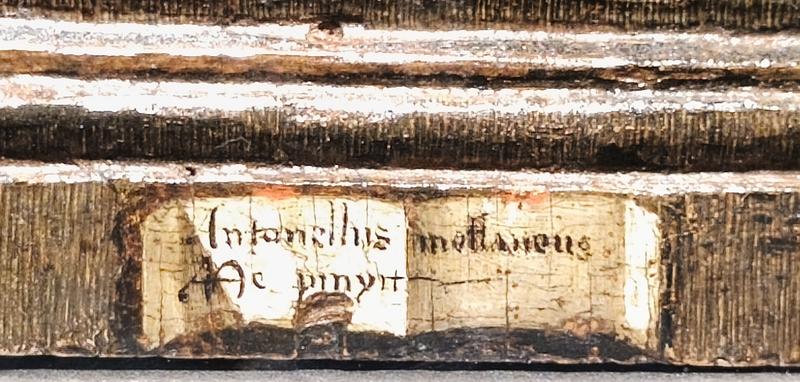 Antonellus messaneus
Me pinxit